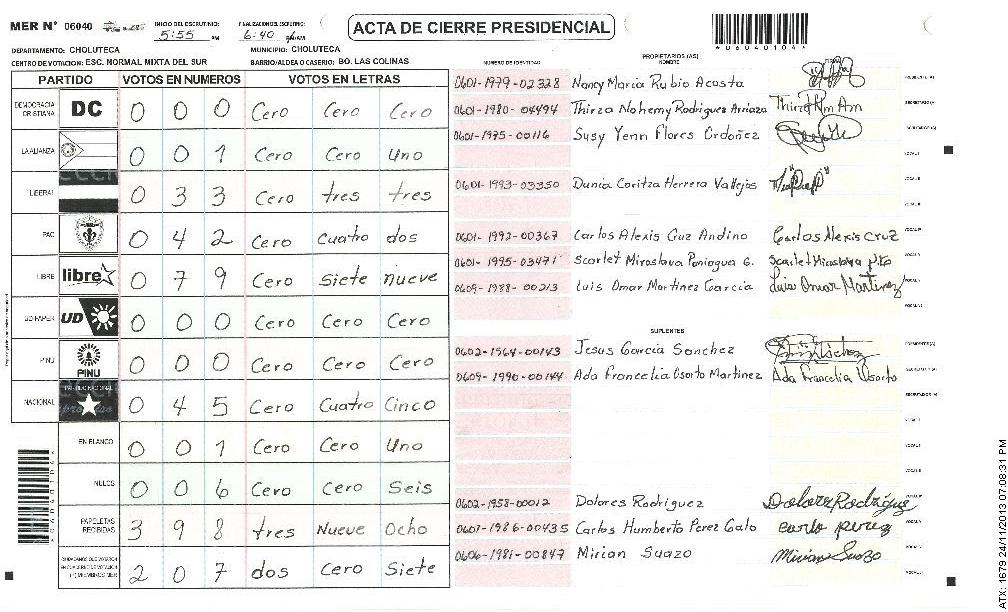 MER N° 06040 INICIO DEL ESCRUTINIO: 5:55 PM FINALIZACION DEL ESCRUTINIO: 6:40 PM
ACTA DE CIERRE PRESIDENCIAL
*06040104*
DEPARTAMENTO: CHOLUTECA MUNICIPIO: CHOLUTECA
CENTRO DE VOTACION: ESC. NORMAL MIXTA DEL SUR BARRIO/ALDEA O CASERIO: BO. LAS COLINAS
PARTIDO VOTOS EN NUMEROS VOTOS EN LETRAS
DEMOCRACIA CRISTIANA DC 0 0 0 Cero Cero Cero
LA ALIANZA 0 0 1 Cero Cero Uno
LIBERAL 0 3 3 Cero tres tres
PAC 0 4 2 Cero Cuatro dos
LIBRE libre 0 7 9 Cero Siete nueve
UD/FAPER UD 0 0 0 Cero Cero Cero
PINU PINU 0 0 0 Cero Cero Cero
NACIONAL 0 4 5 Cero Cuatro Cinco
EN BLANCO 0 0 1 Cero Cero Uno
NULOS 0 0 6 Cero Cero Seis
PAPELETAS RECIBIDAS 3 9 8 tres Nueve Ocho
CIUDADANOS QUE VOTARON EN CUADERNO DE VOTACION (+) MIEMBROS MER 2 0 7 dos Cero Siete
NUMERO DE IDENTIDAD PROPIETARIOS (AS) NOMBRE FIRMA
0601-1979-02328 Nancy Maria Rubio Acosta PRESIDENTE (A)
0601-1980-04494 Thirza Nohemy Rodriguez Arriaza SECRETARIO (A)
0601-1975-00116 Susy Yenn Flores Ordoñez ESCRUTADOR (A)
VOCAL I
0601-1993-03350 Dunia Caritza Herrera Vallejos VOCAL II
0601-1992-00367 Carlos Alexis Cruz Andino Carlos Alexis Cruz VOCAL III
0601-1995-03471 Scarlet Miroslava Paniagua G. Scarlet Miroslava
0609-1988-00213 Luis Omar Martinez Garcia Luis Omar Martinez
SUPLENTES
0602-1964-00143 Jesus Garcia Sanchez PRESIDENTE (A)
0609-1990-00144 Ada Francelia Osorto Martinez Ada Francelia Osorto SECRETARIO (A)
ESCRUTADOR (A)
VOCAL I
VOCAL II
0602-1958-00012 Dolores Rodriguez Dolores Rodriguez
0607-1986-00435 Carlos Humberto Perez Galo Carlo perez
0606-1981-00847 Mirian Suazo Mirian Suazo
ATX: 1679 24/11/2013 07:08:31 PM